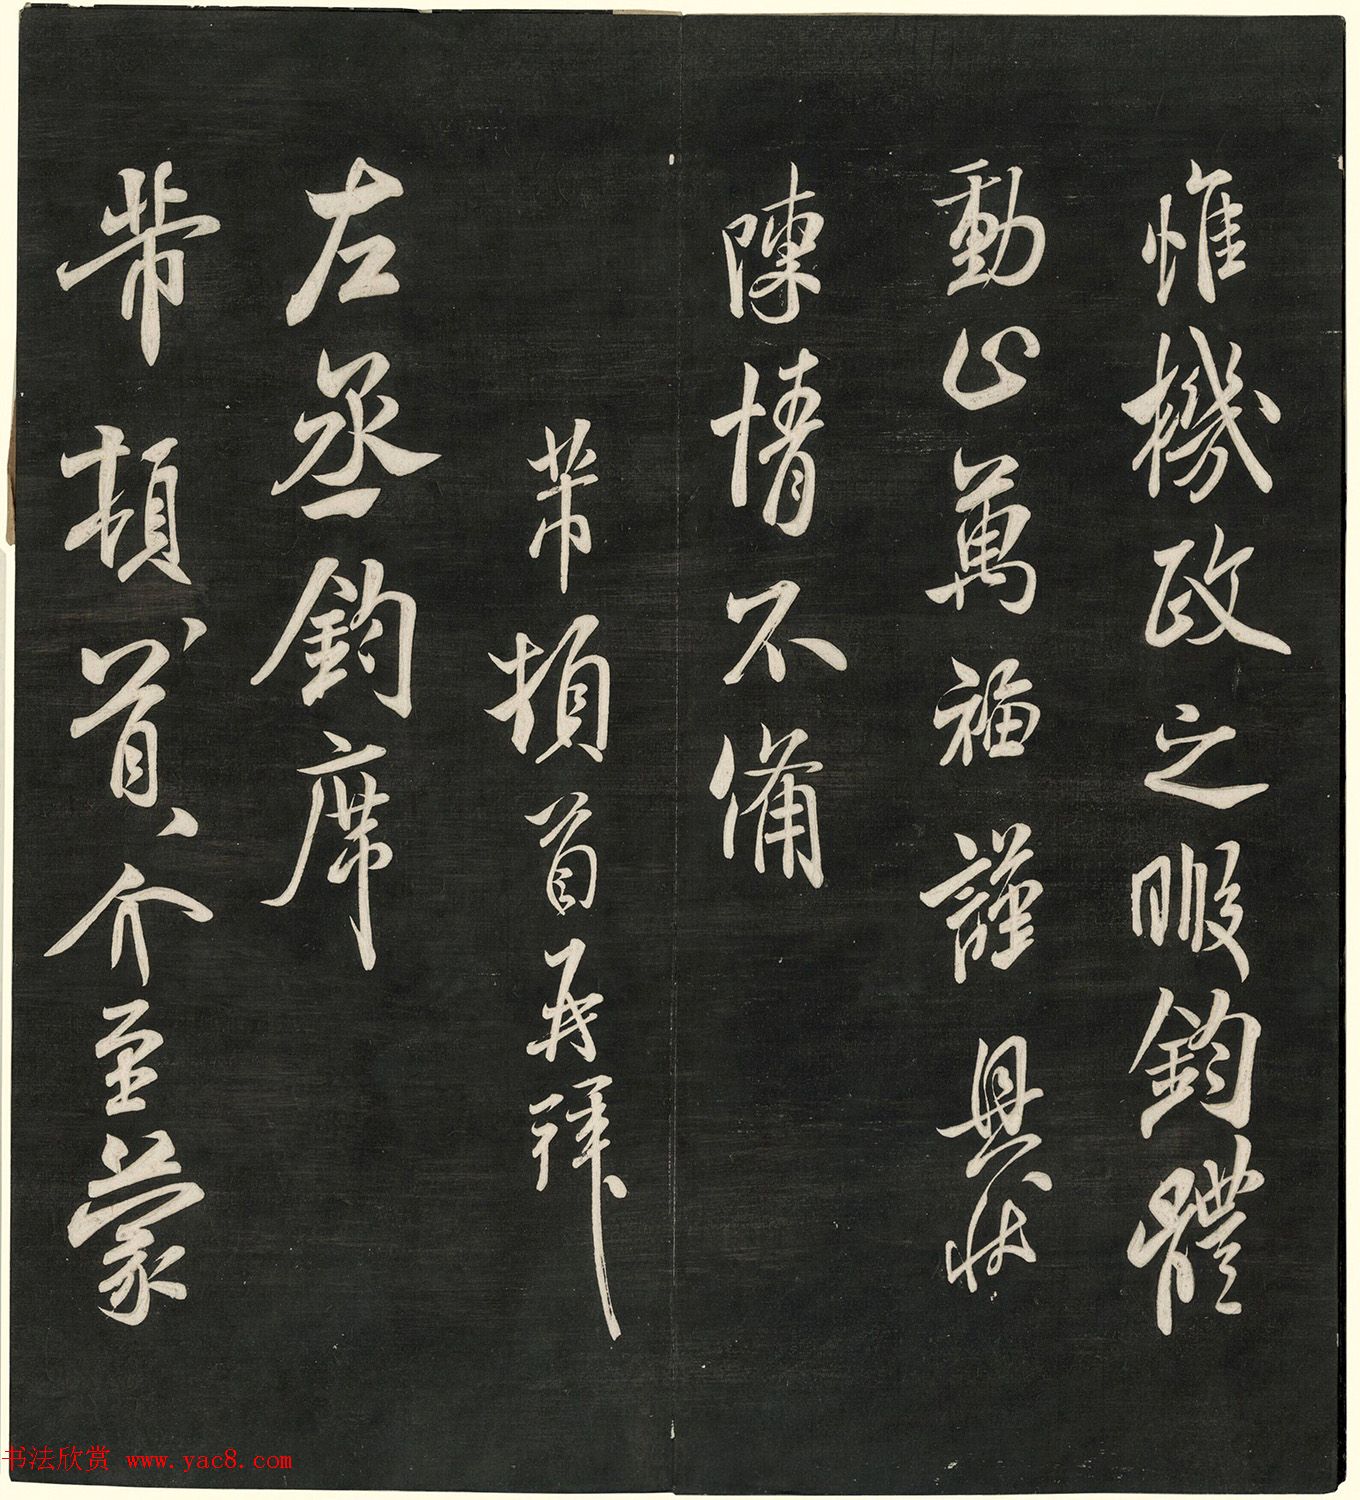 惟機政之暇鈞體
動止萬福謹具狀
陳情不備
芾頓首再拜
左丞鈞席
芾頓首頓首介至蒙
书法欣赏 www.yac8.com